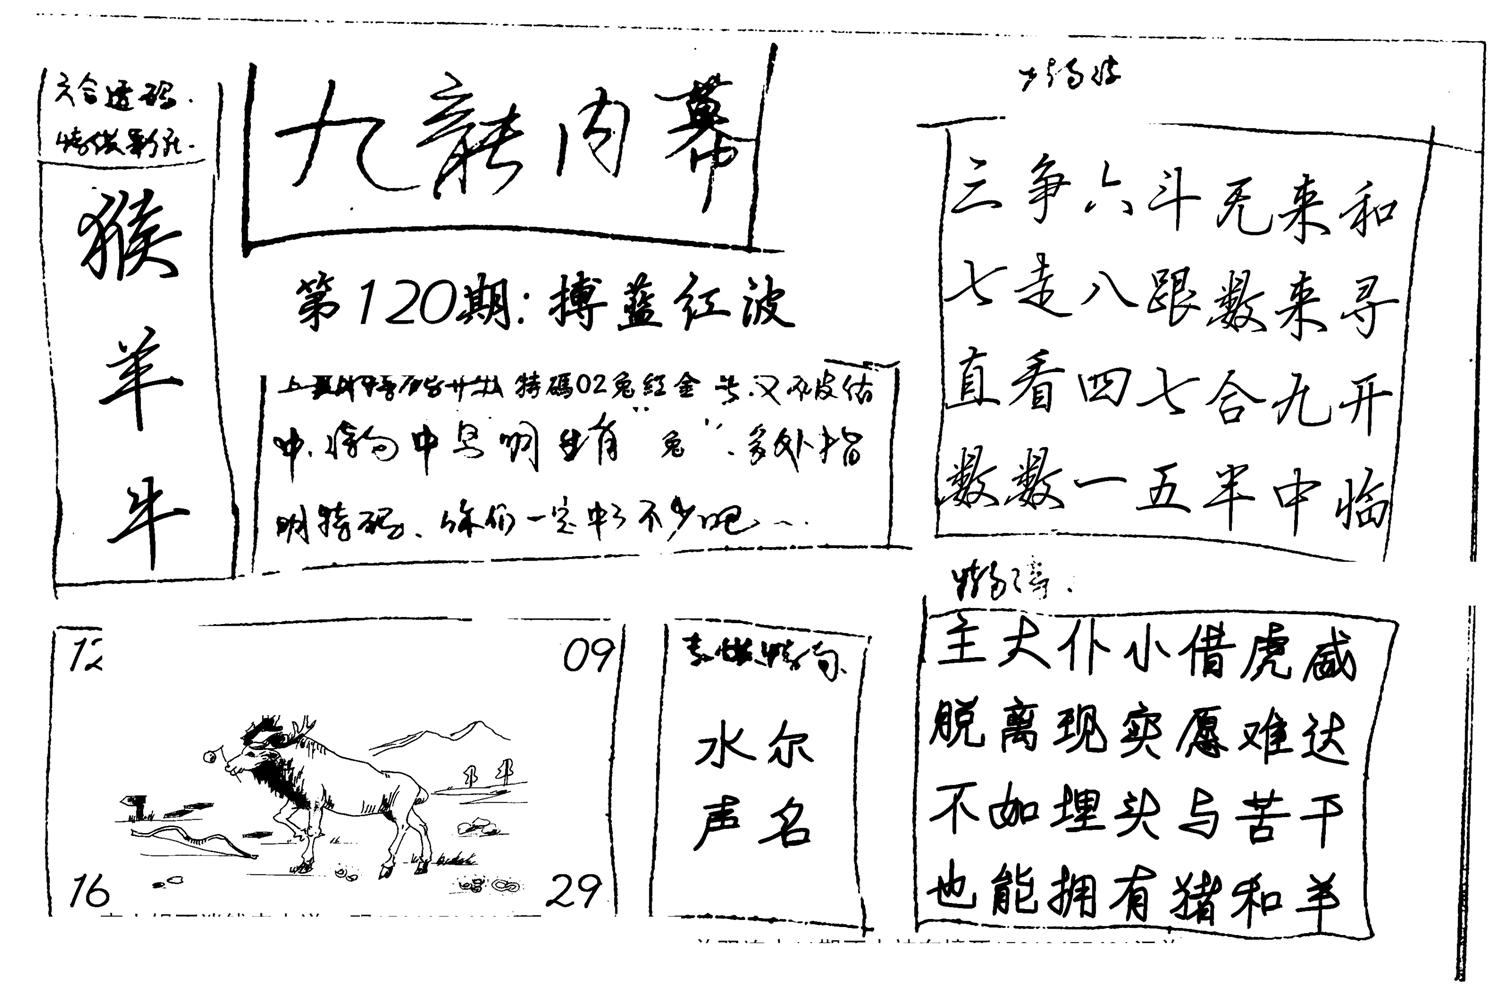 六合透码.
猴
羊
牛
九龍内幕
第120期:搏蓝红波
特碼02兔红金
中.特句中马明生肖“兔”.多处指
明特码、你们一定中了不少吧...
三争六斗旡来和
七走八跟数来寻
直看四七合九开
数数一五半中临
主大仆小借虎威
脱离现实愿难达
不如埋头与苦干
也能拥有猪和羊
12
09
16
29
水尔
声名